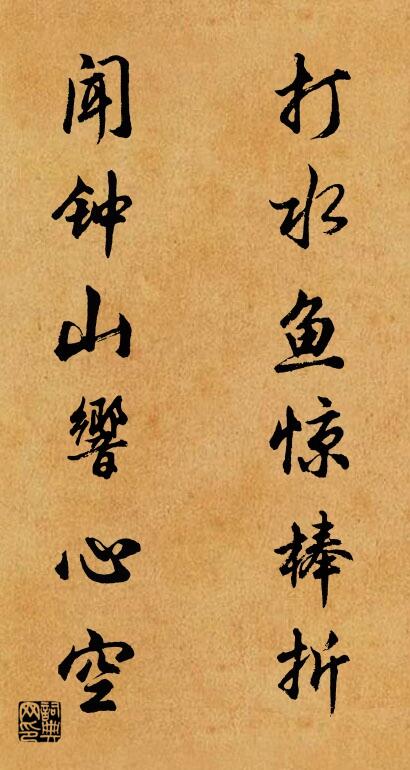 打水鱼惊棒折
闻钟山響心空
詞典网印